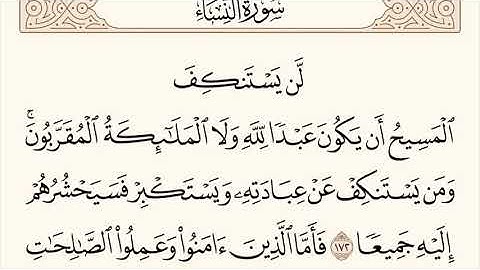 سُورَةُ النِّسَاءِ
لَّن يَسْتَنكِفَ
ٱلْمَسِيحُ أَن يَكُونَ عَبْدًا لِّلَّهِ وَلَا ٱلْمَلَٰٓئِكَةُ ٱلْمُقَرَّبُونَۚ
وَمَن يَسْتَنكِفْ عَنْ عِبَادَتِهِۦ وَيَسْتَكْبِرْ فَسَيَحْشُرُهُمْ
إِلَيْهِ جَمِيعًا ١٧٢ فَأَمَّا ٱلَّذِينَ ءَامَنُوا۟ وَعَمِلُوا۟ ٱلصَّٰلِحَٰتِ